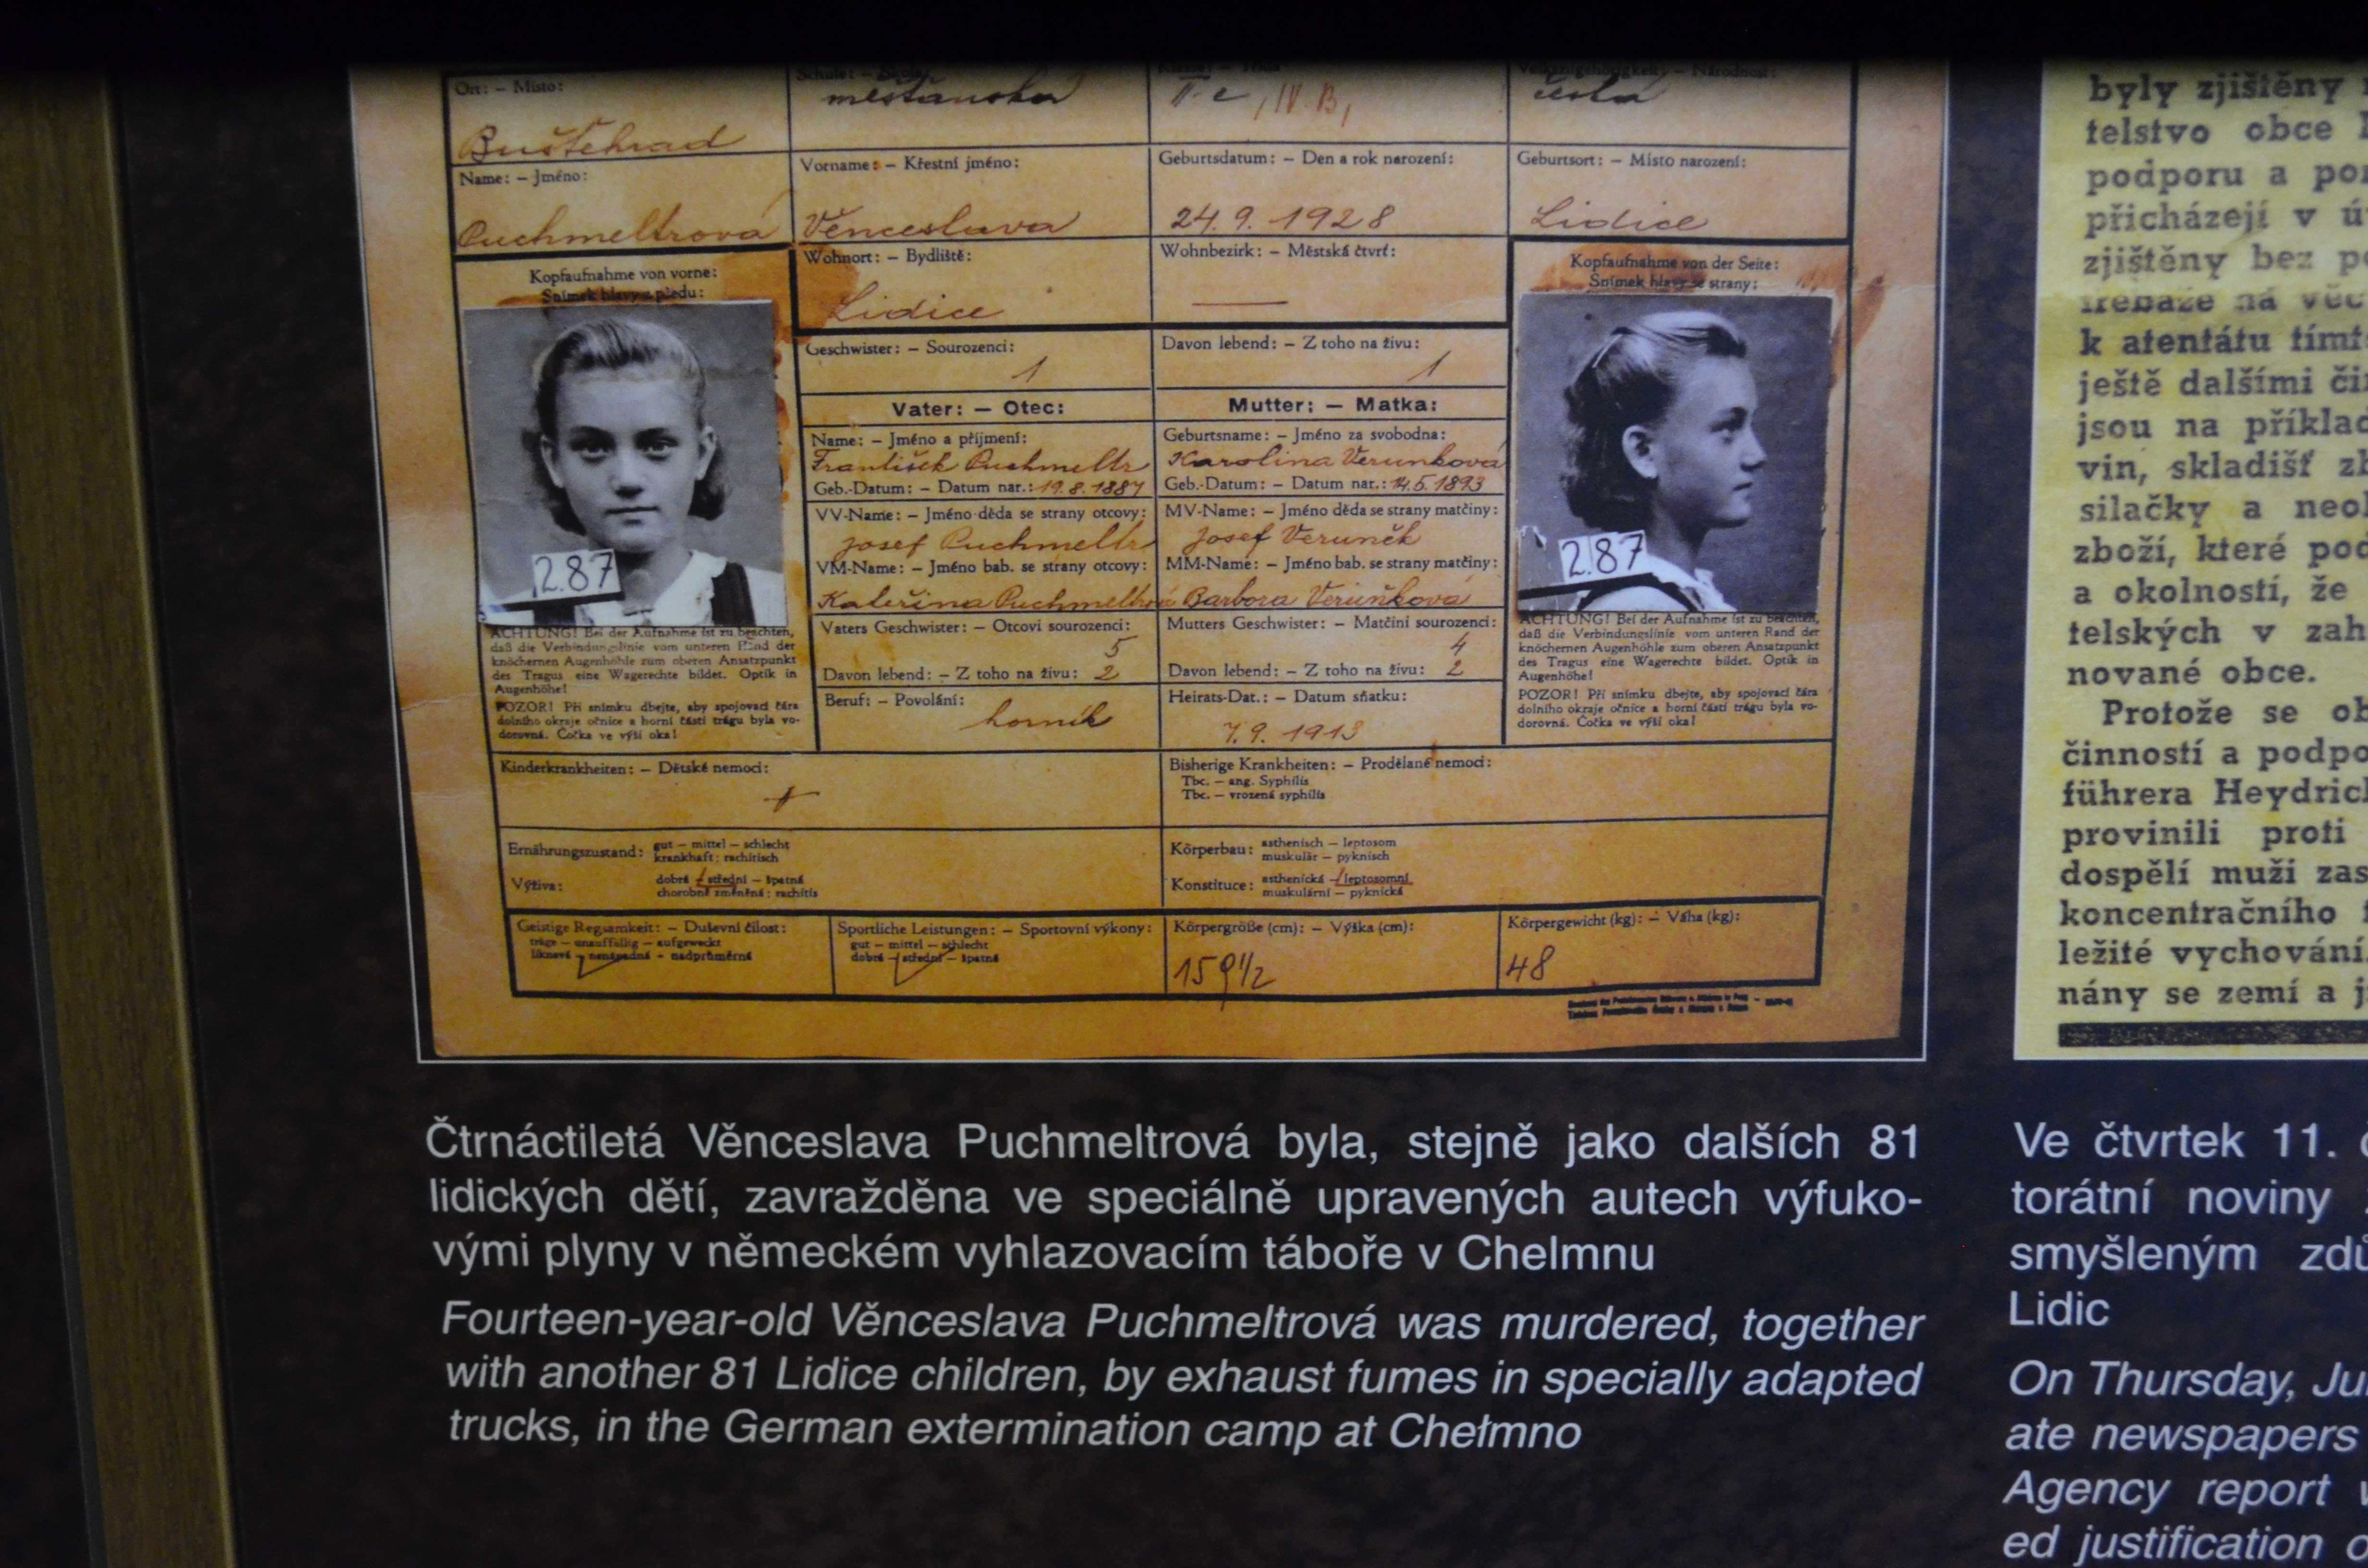 Ort: – Místo:
Buštěhrad
Schule: – Škola:
měšťanská
II. c, IV. B,
Národnost:
česká
Name: – Jméno:
Puchmeltrová
Vorname: – Křestní jméno:
Věnceslava
Geburtsdatum: – Den a rok narození:
24. 9. 1928
Geburtsort: – Místo narození:
Lidice
Kopfaufnahme von vorne:
Snímek hlavy z předu:
2.87
Wohnort: – Bydliště:
Lidice
Wohnbezirk: – Městská čtvrť:
Kopfaufnahme von der Seite:
Snímek hlavy se strany:
2.87
Geschwister: – Sourozenci:
1
Davon lebend: – Z toho na živu:
1
Vater: – Otec:
Mutter: – Matka:
Name: – Jméno a příjmení:
František Puchmeltr
Geb.-Datum: – Datum nar.: 19. 8. 1887
Geburtsname: – Jméno za svobodna:
Karolina Verunková
Geb.-Datum: – Datum nar.: 14. 5. 1893
VV-Name: – Jméno děda se strany otcovy:
Josef Puchmeltr
MV-Name: – Jméno děda se strany matčiny:
Josef Veruněk
VM-Name: – Jméno bab. se strany otcovy:
Kateřina Puchmeltrová
MM-Name: – Jméno bab. se strany matčiny:
Barbora Veruňková
Vaters Geschwister: – Otcovi sourozenci:
5
Davon lebend: – Z toho na živu: 2
Mutters Geschwister: – Matčini sourozenci:
4
Davon lebend: – Z toho na živu: 2
Beruf: – Povolání:
horník
Heirats-Dat.: – Datum sňatku:
7. 9. 1913
ACHTUNG! Bei der Aufnahme ist zu beachten,
daß die Verbindungslinie vom unteren Rand der
knöchernen Augenhöhle zum oberen Ansatzpunkt
des Tragus eine Wagerechte bildet. Optik in
Augenhöhe!
POZOR! Při snímku dbejte, aby spojovací čára
dolního okraje očnice a horní části trágu byla vo-
dorovná. Čočka ve výši oka!
ACHTUNG! Bei der Aufnahme ist zu beachten,
daß die Verbindungslinie vom unteren Rand der
knöchernen Augenhöhle zum oberen Ansatzpunkt
des Tragus eine Wagerechte bildet. Optik in
Augenhöhe!
POZOR! Při snímku dbejte, aby spojovací čára
dolního okraje očnice a horní části trágu byla vo-
dorovná. Čočka ve výši oka!
Kinderkrankheiten: – Dětské nemoci:
Bisherige Krankheiten: – Prodělané nemoci:
Tbc. – ang. Syphilis
Tbc. – vrozená syphilis
Ernährungszustand: gut – mittel – schlecht
krankhaft: rachitisch
Výživa: dobrá – střední – špatná
chorobně změněná: rachitis
Körperbau: asthenisch – leptosom
muskulär – pyknisch
Konstituce: asthenická – leptosomní
muskulární – pyknická
Geistige Regsamkeit: – Duševní čilost:
träge – unauffällig – aufgeweckt
liknavá – nenápadná – nadprůměrná
Sportliche Leistungen: – Sportovní výkony:
gut – mittel – schlecht
dobré – střední – špatné
Körpergröße (cm): – Výška (cm):
159 1/2
Körpergewicht (kg): – Váha (kg):
48
Čtrnáctiletá Věnceslava Puchmeltrová byla, stejně jako dalších 81
lidických dětí, zavražděna ve speciálně upravených autech výfuko-
vými plyny v německém vyhlazovacím táboře v Chelmnu
Fourteen-year-old Věnceslava Puchmeltrová was murdered, together
with another 81 Lidice children, by exhaust fumes in specially adapted
trucks, in the German extermination camp at Chełmno
byly zjištěny
telstvo obce
podporu a
přicházejí v
zjištěny bez
třebaže na
k atentátu
ještě dalšími
jsou na
vin, skladišť
silačky a
zboží, které
a okolností, že
telských v
nované obce.
Protože se
činností a
führera
provinili proti
dospělí muži
koncentračního
ležité
nány se zemí a
Ve čtvrtek 11.
torátní noviny
smyšleným
Lidic
On Thursday,
ate newspapers
Agency report
ed justification